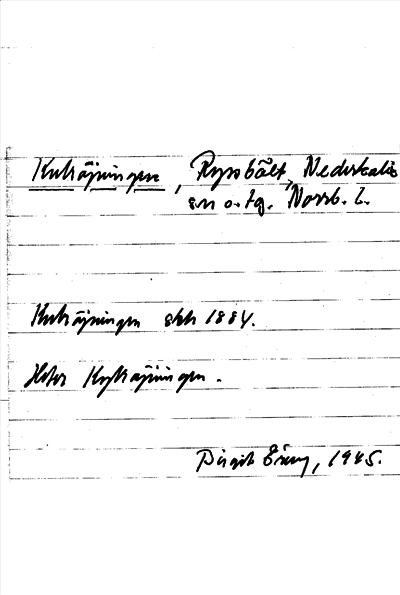 Kuträjningen, Ryssbält, Nederkalix
sn o. tg. Norrb. l.
Kuträjningen ekk 1884.
Heter Kyträjningen.
Birgit 1945.